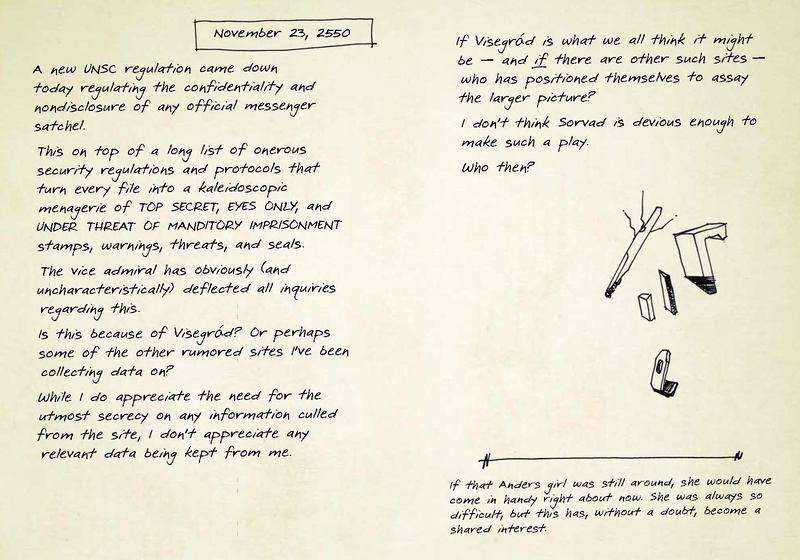 November 23, 2550
A new UNSC regulation came down
today regulating the confidentiality and
nondisclosure of any official messenger
satchel.
This on top of a long list of onerous
security regulations and protocols that
turn every file into a kaleidoscopic
menagerie of TOP SECRET, EYES ONLY, and
UNDER THREAT OF MANDITORY IMPRISONMENT
stamps, warnings, threats, and seals.
The vice admiral has obviously (and
uncharacteristically) deflected all inquiries
regarding this.
Is this because of Visegrád? Or perhaps
some of the other rumored sites I've been
collecting data on?
While I do appreciate the need for the
utmost secrecy on any information culled
from the site, I don't appreciate any
relevant data being kept from me.
If Visegrád is what we all think it might
be — and if there are other such sites —
who has positioned themselves to assay
the larger picture?
I don't think Sorvad is devious enough to
make such a play.
Who then?
If that Anders girl was still around, she would have
come in handy right about now. She was always so
difficult, but this has, without a doubt, become a
shared interest.